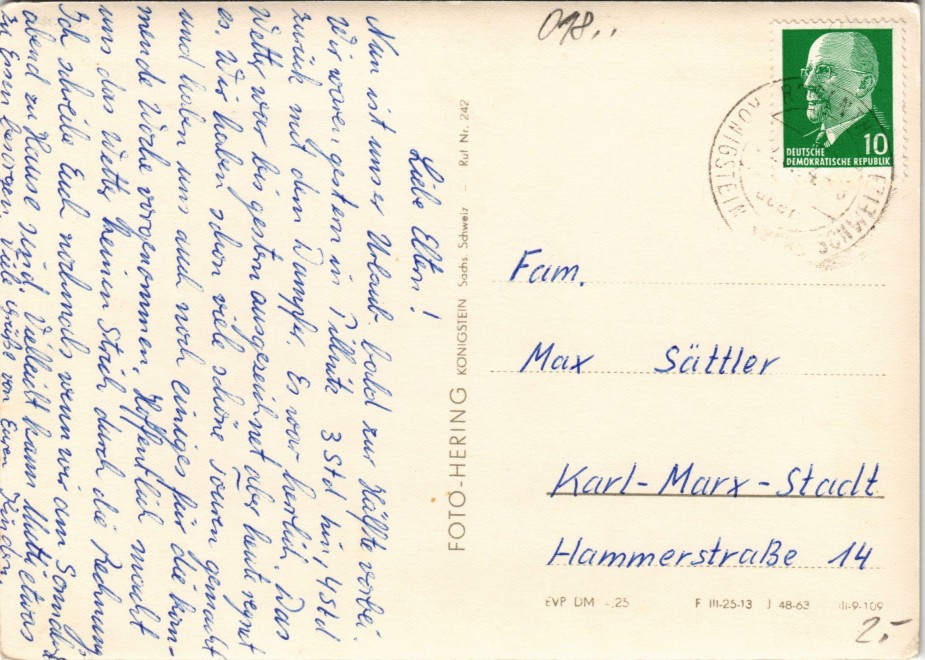 Liebe Eltern!
Nun ist unser Urlaub bald zur Hälfte vorbei.
Wir waren gestern in Tillnitz 3 Std hin, 4 Std
zurück mit dem Dampfer. Es war herrlich. Das
Wetter war bis gestern ausgezeichnet aber heute regnet
es. Wir haben schon viele schöne Touren gemacht
und haben uns auch noch einiges für die kom-
mende Woche vorgenommen. Hoffentlich macht
uns das Wetter keinen Strich durch die Rechnung
Ich schreibe Euch nochmals wenn wir am Sonn
abend zu Hause sind. Vielleicht kann Mutti etwas
zu Essen besorgen. Viele Grüße von Euren Kindern.
FOTO-HERING KÖNIGSTEIN Sächs. Schweiz - Ruf Nr. 242
018..
10
DEUTSCHE
DEMOKRATISCHE REPUBLIK
KÖNIGSTEIN
Fam.
Max Sättler
Karl-Marx-Stadt
Hammerstraße 14
EVP DM -,25 F III-25-13 J 48-63 III-9-109
2,-